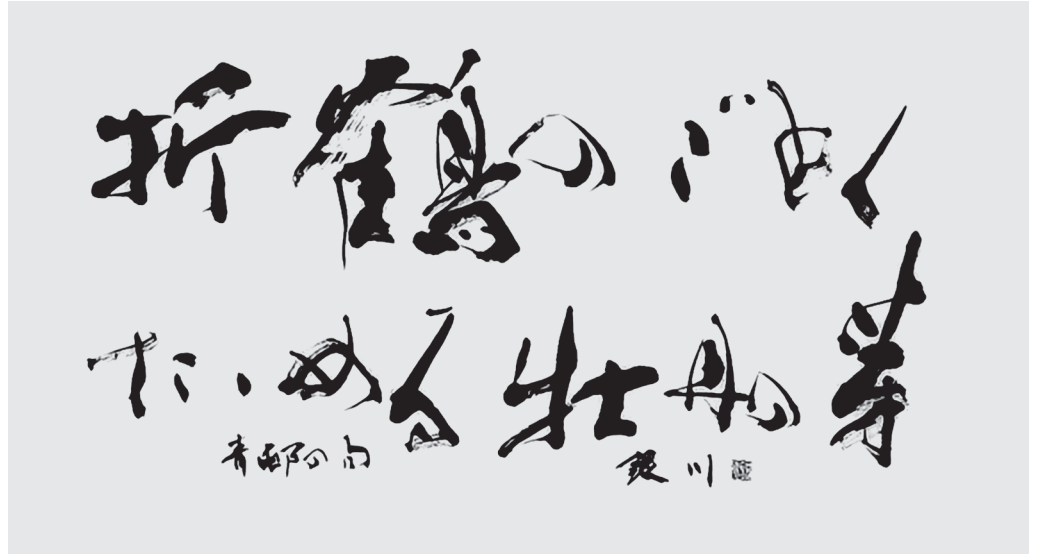 折鶴のごとく
たゝめる牡丹の芽
青邨の句